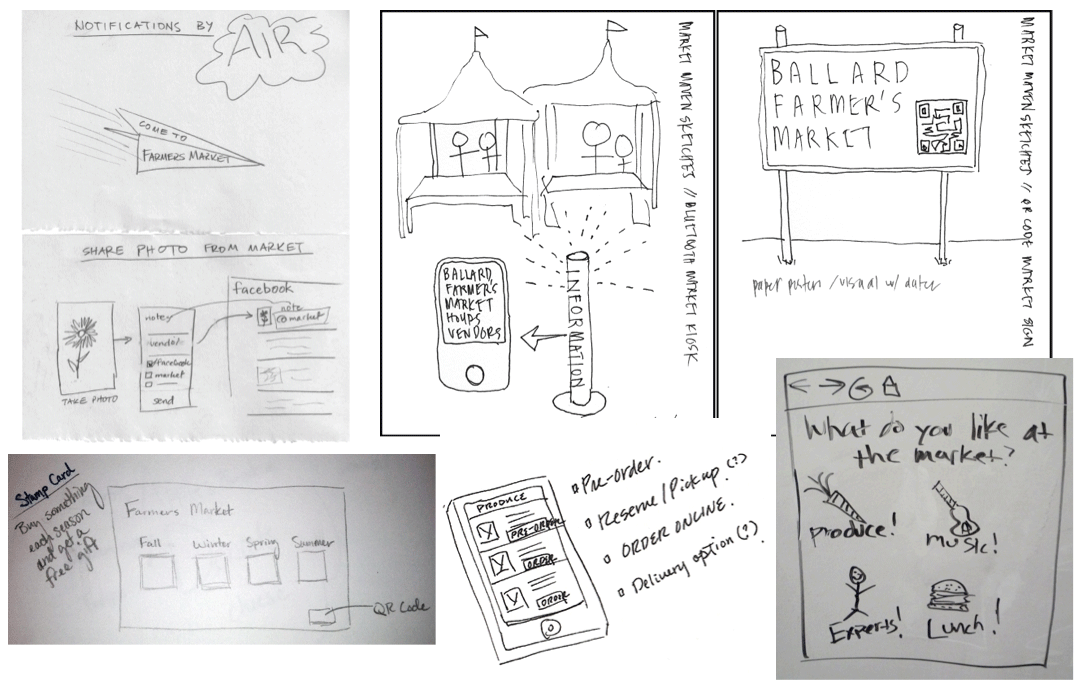 NOTIFICATIONS BY
AIR
COME TO
FARMERS MARKET
SHARE PHOTO FROM MARKET
TAKE PHOTO
note
vendor
facebook
market
send
facebook
note
@market
MARKET MAVEN SKETCHES // BLUETOOTH MARKET KIOSK
BALLARD
FARMER'S
MARKET
HOURS
VENDORS
INFORMATION
MARKET MAVEN SKETCHES // QR CODE MARKET SIGN
BALLARD
FARMER'S
MARKET
paper posters / visual w/ dates
Stamp Card
Buy something
each season
and get a
free gift
Farmers Market
Fall Winter Spring Summer
QR Code
PRODUCE
PRE-ORDER
ORDER
ORDER
Pre-order.
Reserve/Pickup (?)
ORDER ONLINE.
Delivery option (?).
What do you like at
the market?
produce!
music!
Experts!
Lunch!